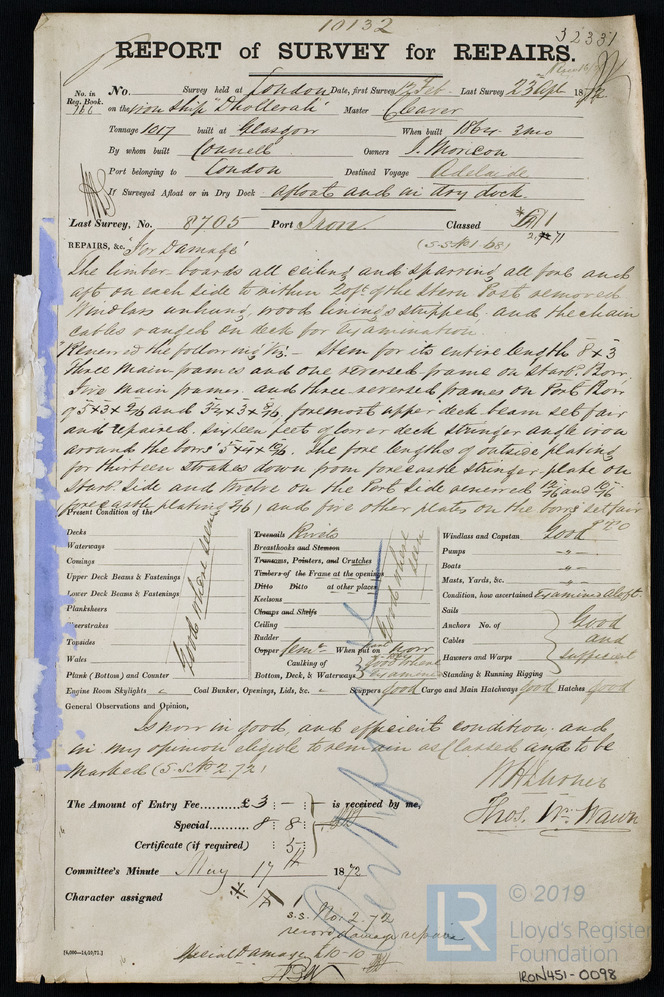 10132
32331
REPORT of SURVEY for REPAIRS.
No. in Reg. Book. 166
No. Survey held at London Date, first Survey 12 Feb. Last Survey 23rd Apl 1872
on the Iron Ship "Dhollerah" Master Cleaver
Tonnage 1017 built at Glasgow When built 1864 3mo
By whom built Connell Owners J. Morison
Port belonging to London Destined Voyage Adelaide
If Surveyed Afloat or in Dry Dock afloat and in dry dock.
Last Survey, No. 8705 Port Iron. Classed A 1
(S.S. No 1 68) 2, 71
REPAIRS, &c. "For Damage"
The limber boards all ceiling and sparring all fore and
aft on each side to within 20 ft of the Stern Post removed
Windlass unhung, wood linings stripped and the chain
cables ranged on deck for examination.
Renewed the following viz: - Stem for its entire length 8 x 3
three main frames and one reversed frame on Starb. Bow.
Five main frames and three reversed frames on Port Bow
of 5 x 3 x and 3½ x 3 x foremost upper deck beam set fair
and repaired. sixteen feet of lower deck stringer angle iron
around the bows 5 x 4 x . The fore lengths of outside plating
for thirteen strakes down from forecastle stringer plate on
Starb. side and twelve on the Port side renewed and
forecastle plating and five other plates on the bows set fair
P.T.O
Present Condition of the
Decks
Waterways
Comings
Upper Deck Beams & Fastenings
Lower Deck Beams & Fastenings
Planksheers
Sheerstrakes
Topsides
Wales
Plank (Bottom) and Counter
Good where seen
Treenails Rivets
Breasthooks and Stemson
Transoms, Pointers, and Crutches
Timbers of the Frame at the openings
Ditto Ditto at other places
Keelsons
Clamps and Shelfs
Ceiling
Rudder
Good where seen
Copper Cemt. When put on now
Caulking of
Bottom, Deck, & Waterways
good where examined
Windlass and Capstan Good
Pumps "
Boats "
Masts, Yards, &c. "
Condition, how ascertained Examined aloft.
Sails
Anchors No. of
Cables
Hawsers and Warps
Standing & Running Rigging
Good and sufficient
Engine Room Skylights " Coal Bunker, Openings, Lids, &c. " Scuppers good Cargo and Main Hatchways good Hatches good
General Observations and Opinion,
Is now in good and efficient condition and
in my opinion eligible to remain as Classed and to be
marked (S.S. No 2. 72)
Thos. Wm. Wawn
The Amount of Entry Fee..........£ 3 : - : is received by me,
Special...... 8 : 8 :
Certificate (if required) : 5 -
Committee's Minute May 17th 1872
Character assigned A 1
S.S. No. 2. 72
record damage repairs
Special Damage £10-10
[4,000—14/10/71.]
LR
© 2019
Lloyd's Register
Foundation
IRON451-0098